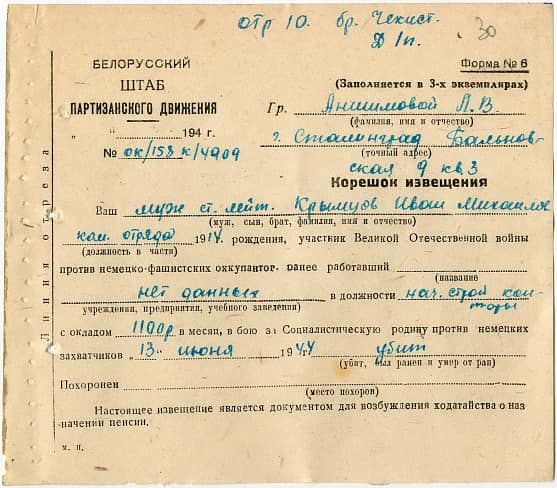 отр 10. бр. Чекист.
Д 1п. 30
БЕЛОРУССКИЙ
ШТАБ
ПАРТИЗАНСКОГО ДВИЖЕНИЯ
„ “ 194 г.
№ ок/158 к/4909
Форма № 6
(Заполняется в 3-х экземплярах)
Гр. Анишмовой Л. В.
(фамилия, имя и отчество)
г. Сталинград Бальнов-
(точный адрес)
ская 9 кв. 3
Корешок извещения
Ваш муж ст. лейт. Крымцов Иван Михайл
(муж, сын, брат, фамилия, имя и отчество)
ком. отряда 1914 рождения, участник Великой Отечественной войны
(должность в части)
против немецко-фашистских оккупантов ранее работавший
(название)
нет данных в должности нач. строй кон-
торы
учреждения, предприятия, учебного заведения)
с окладом 1100р в месяц, в бою за Социалистическую родину против немецких
захватчиков „13“ июня 1944 г убит
(убит, был ранен и умер от ран)
Похоронен
(место похорон)
Настоящее извещение является документом для возбуждения ходатайства о наз-
начении пенсии.
М. П.
Линия отреза